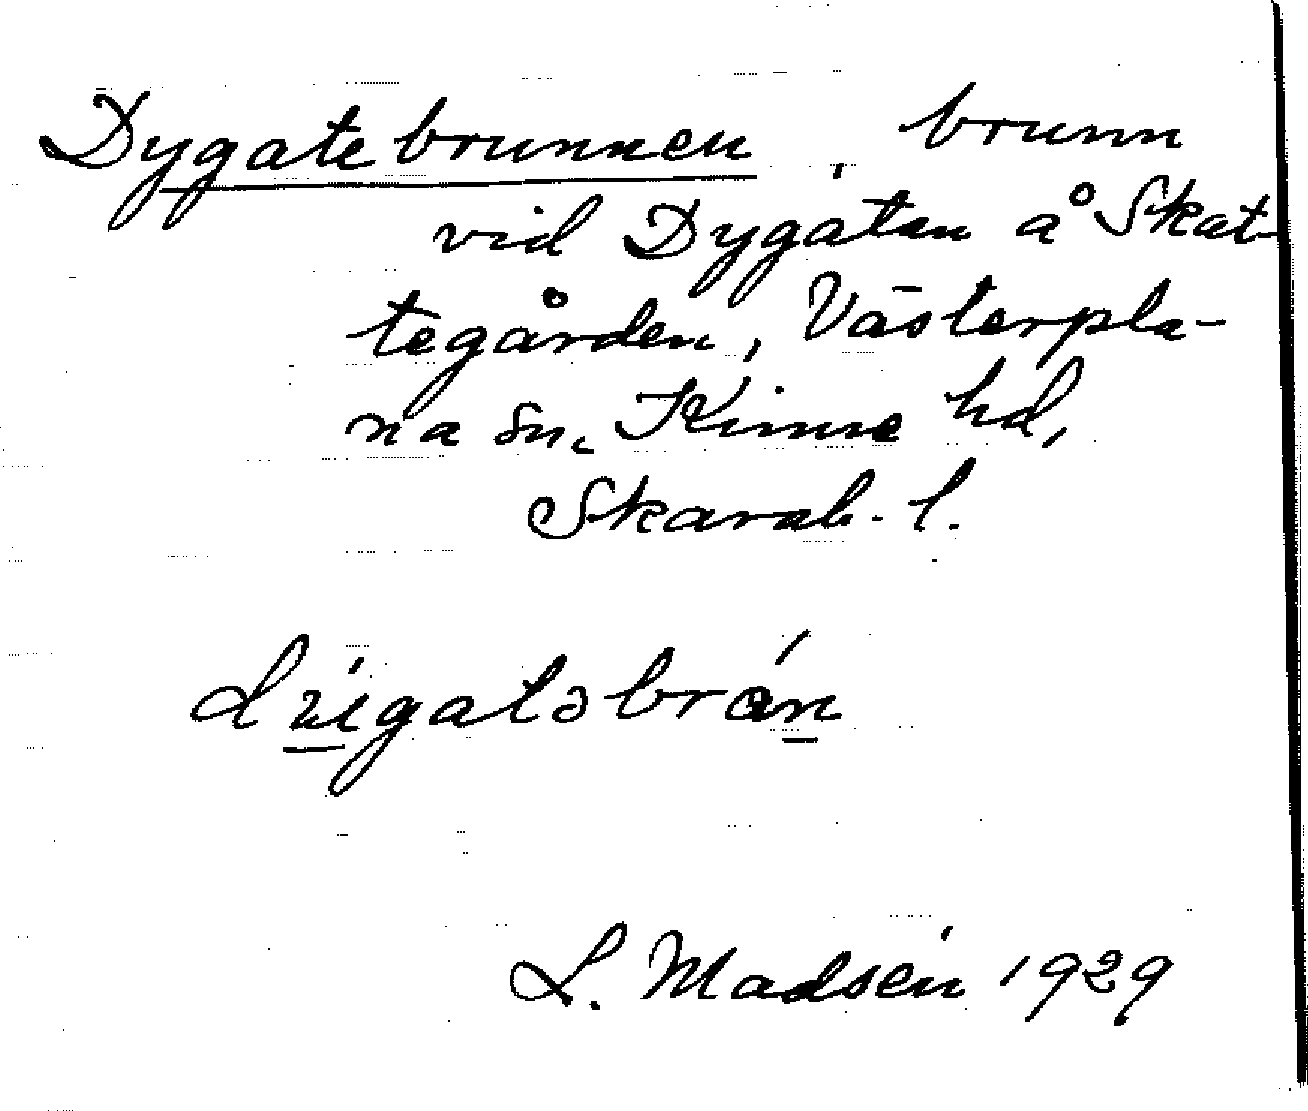 Dygatebrunnen brunn
vid Dygatan å Skat-
tegården, Västerpla-
na sn, Kinne hd,
Skarab. l.
L. Madsén 1929